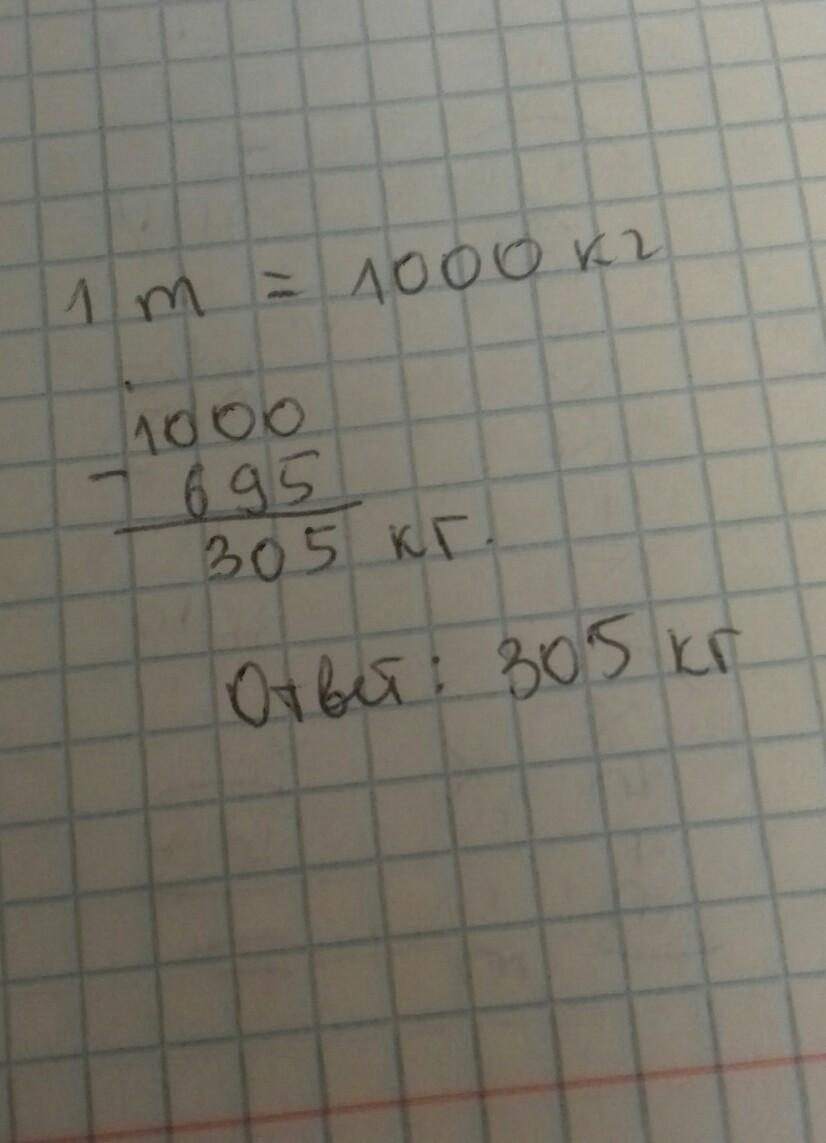 1 т = 1000 кг
1000
- 695
305 кг.
Ответ: 305 кг